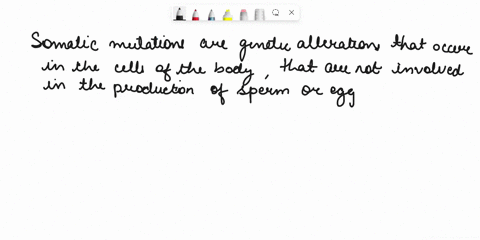 Somatic mutations are genetic alterations that occur
in the cells of the body, that are not involved
in the production of sperm or egg